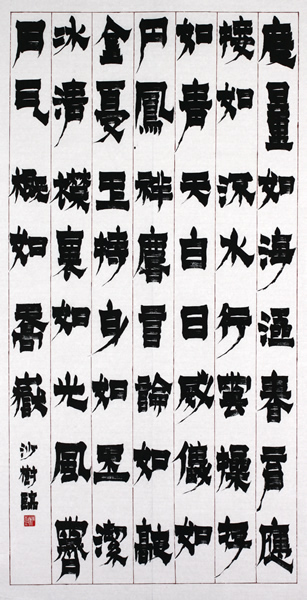 度量如海涵春育應
接如流水行雲操存
如青天白日威儀如
丹鳳祥麐言論如敲
金戛玉持身如玉潔
冰清襟褱如光風霽
月气概如喬嶽
沙樹臨